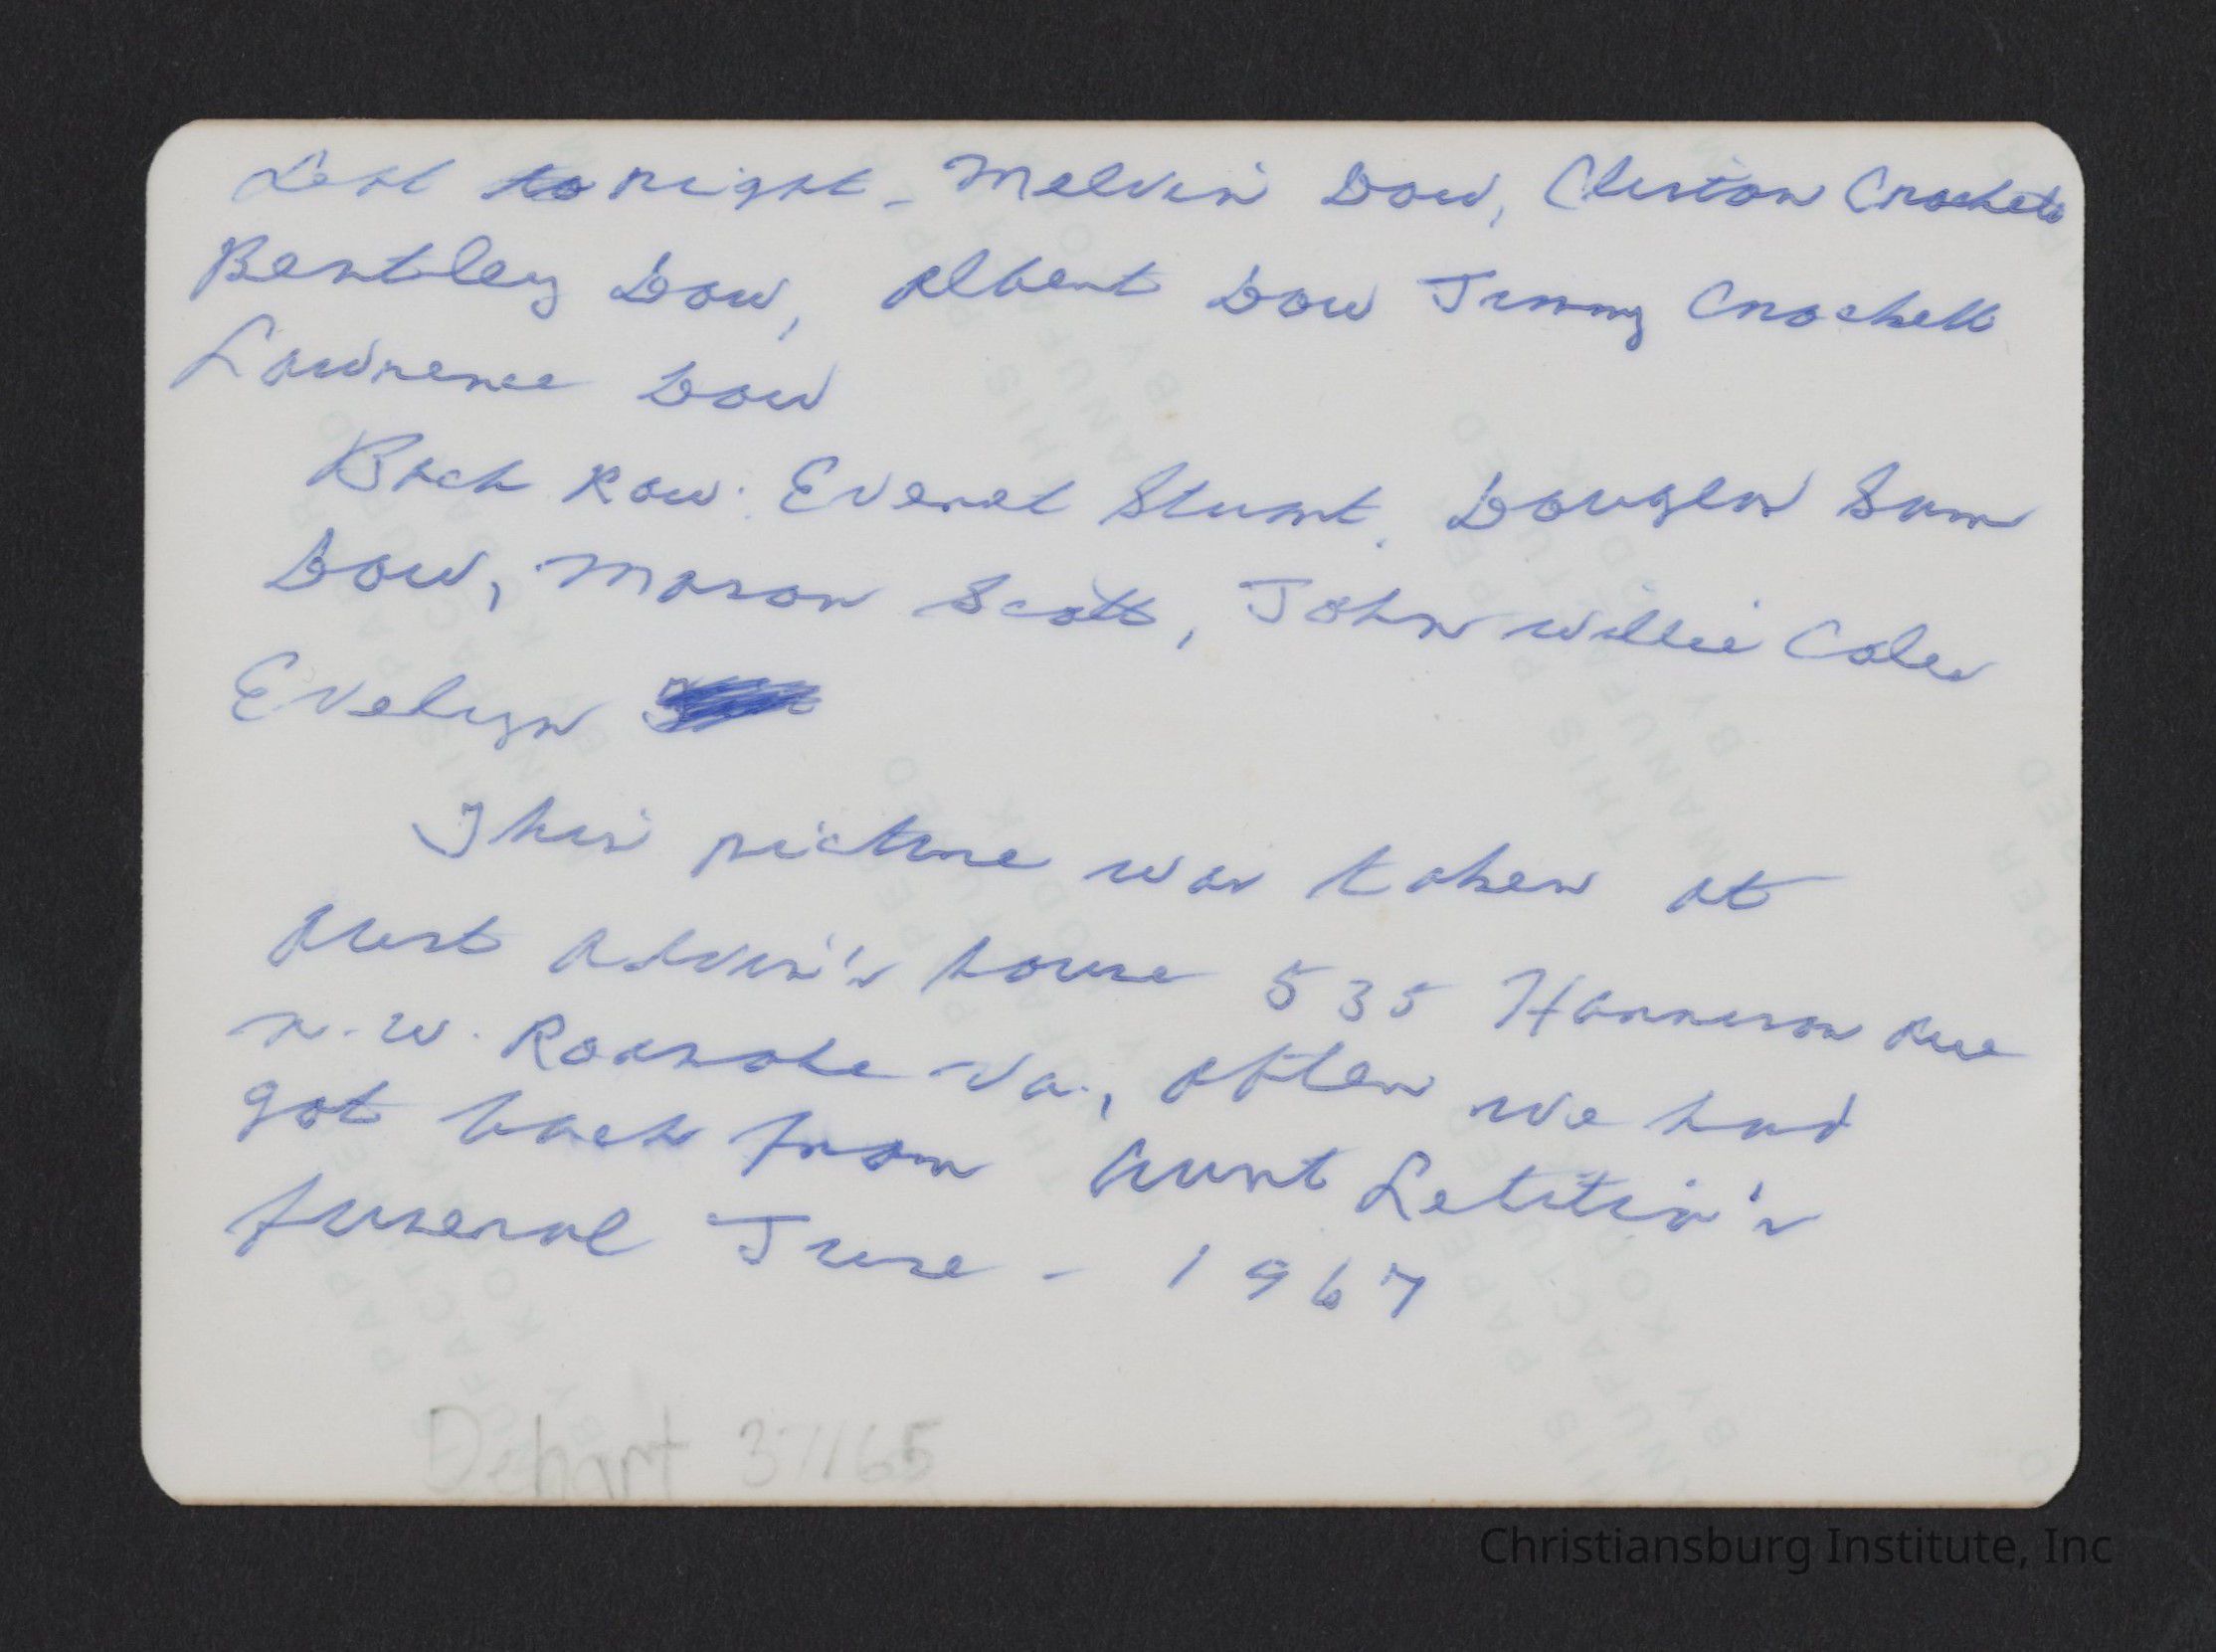 Left to right - Melvin Dow, Clinton Crockett
Bentley Dow, Albert Dow Jimmy Crockett
Lawrence Dow
Back Row: Everet Stuart. Douglas Sam
Dow, Mason Scott, John Willie Coles
Evelyn
This picture was taken at
Aunt house 535 Harrison Ave
N.W. Roanoke Va., after we had
got back from Aunt Letitia's
funeral June - 1967
Depart 37165
Christiansburg Institute, Inc